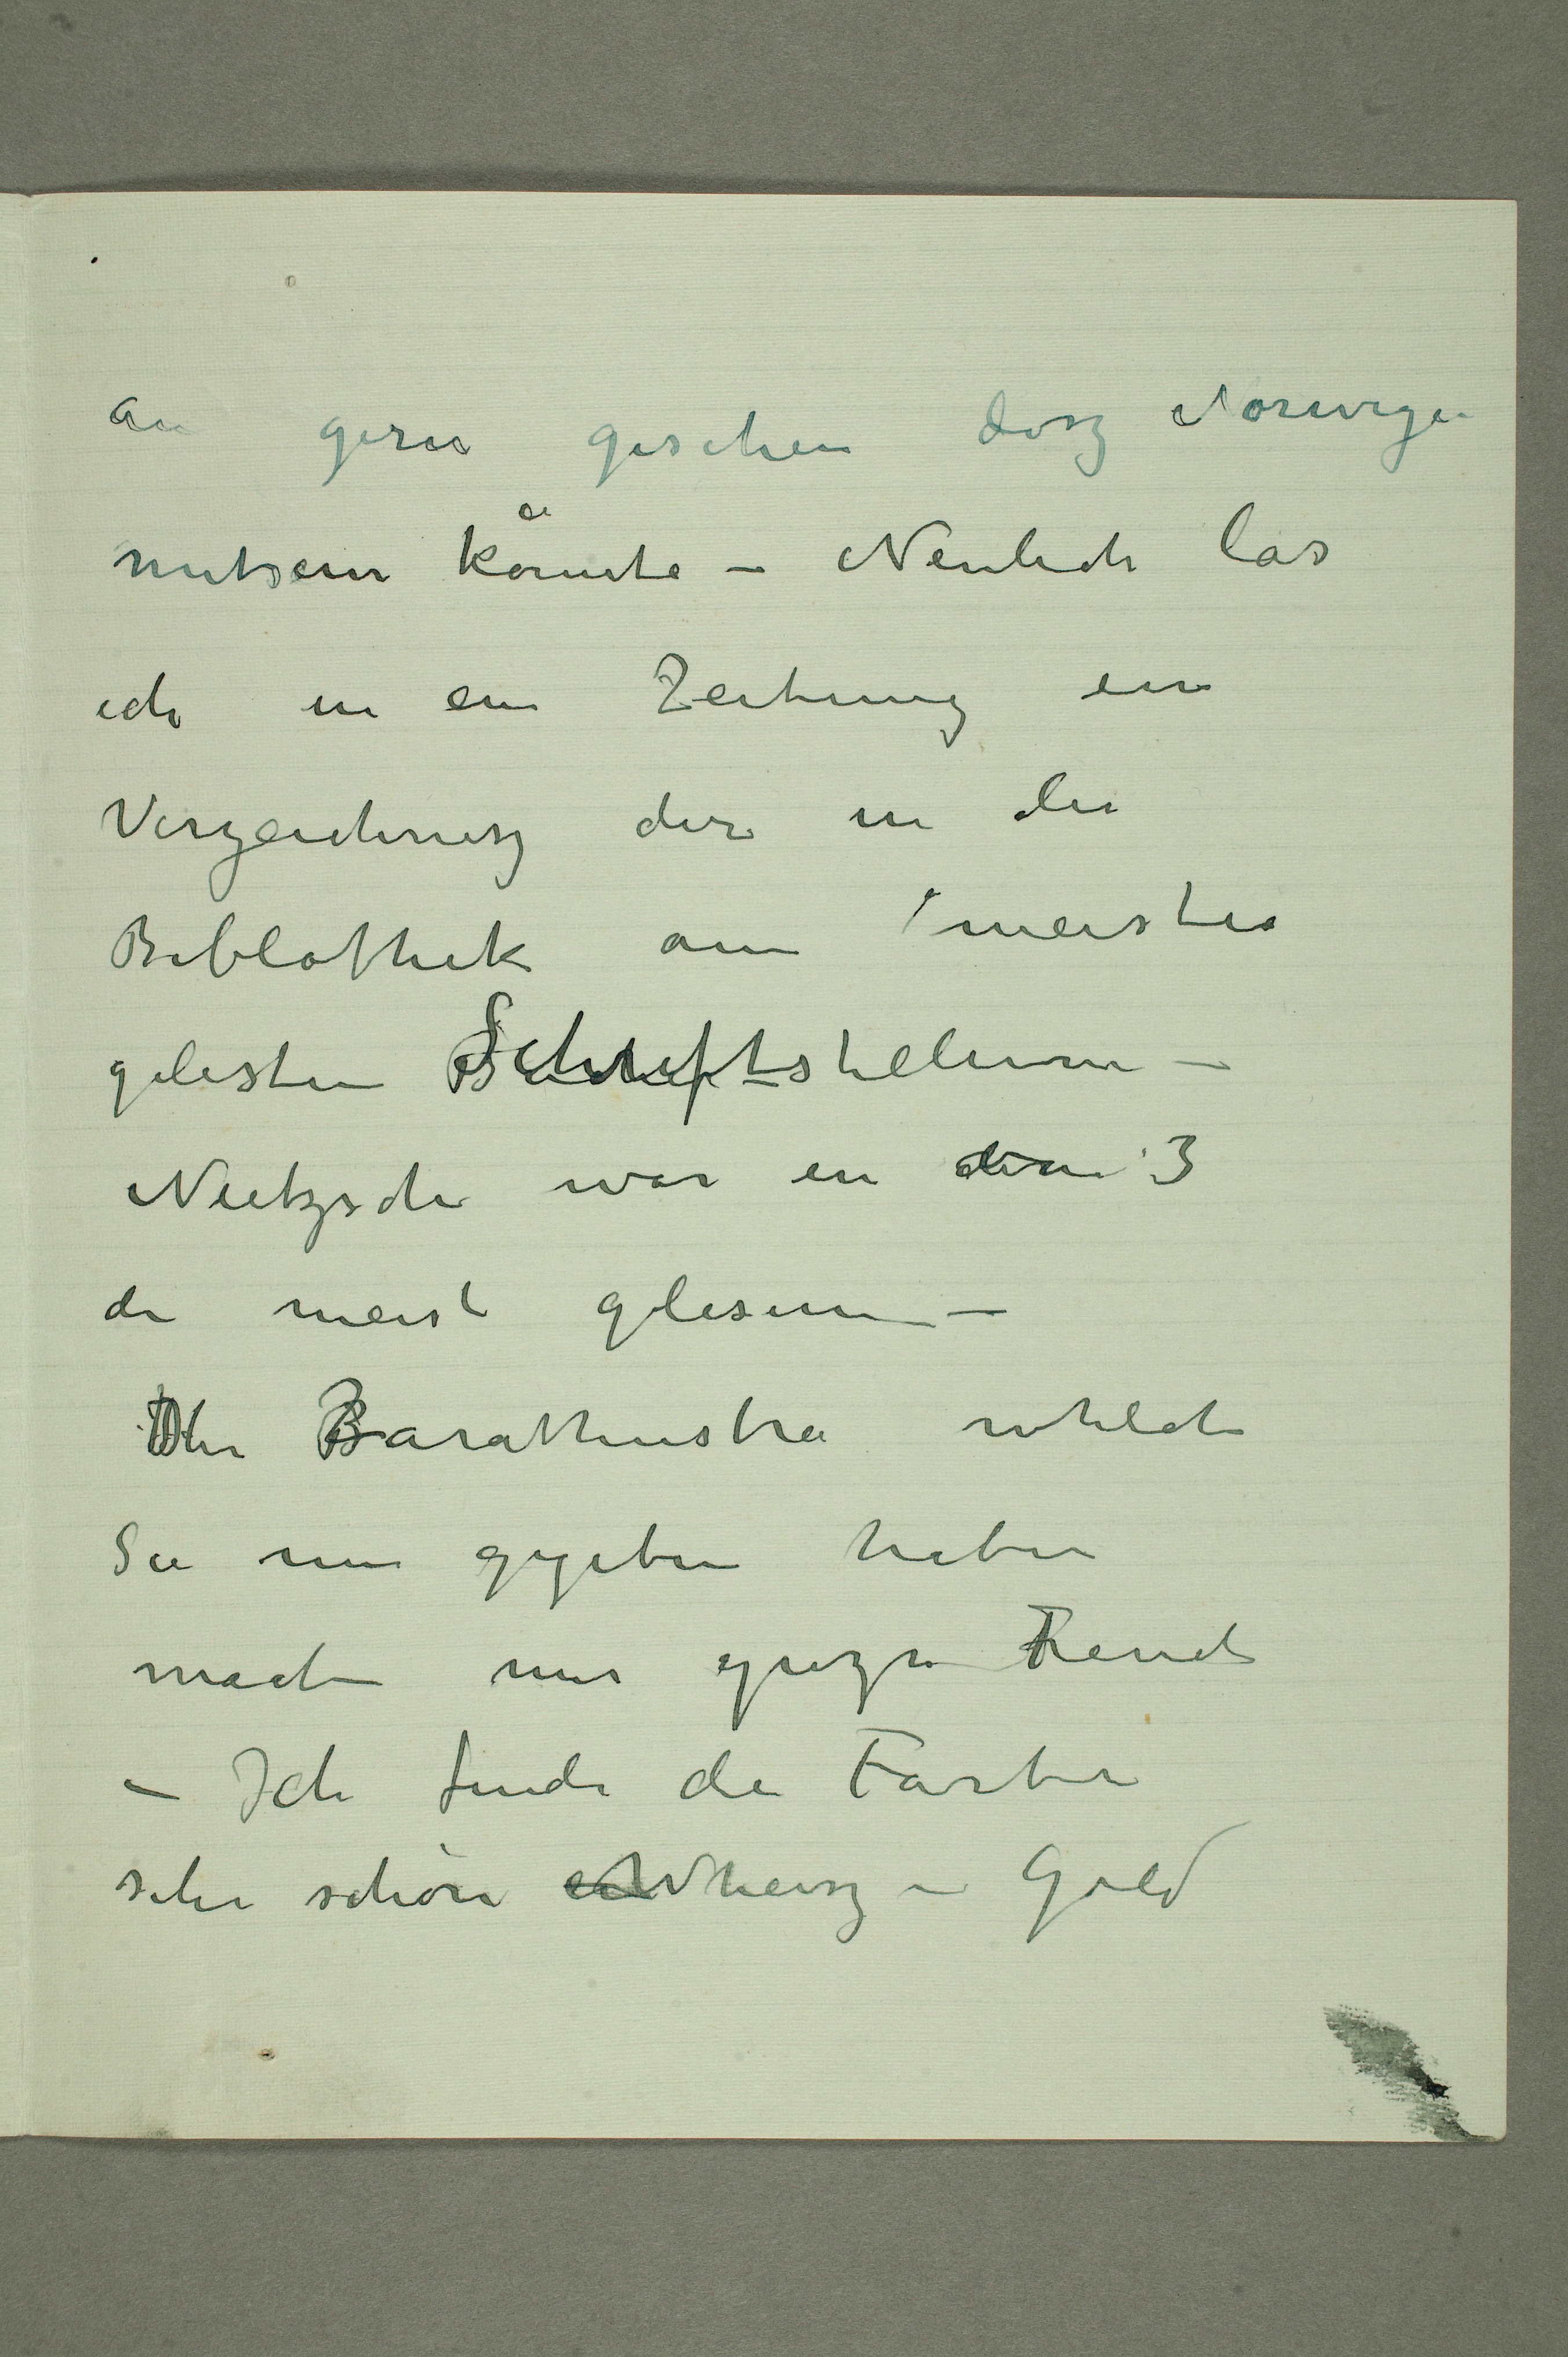 an gerne geschen dasz Norwegen
mitsein könnte – Neulich las
ich in ein Zeitung ein
Verzeichnisz der in der
Bibliothek am meisten
gelesten Schriftstellern –
Nietzsche war ein der 3
der meist gelesenen –
Der Zarathustra whelche
Sie mir gegeben haben
macht mir groze Freude
– Ich finde die Farben
sehr schön Wheisz – Gold